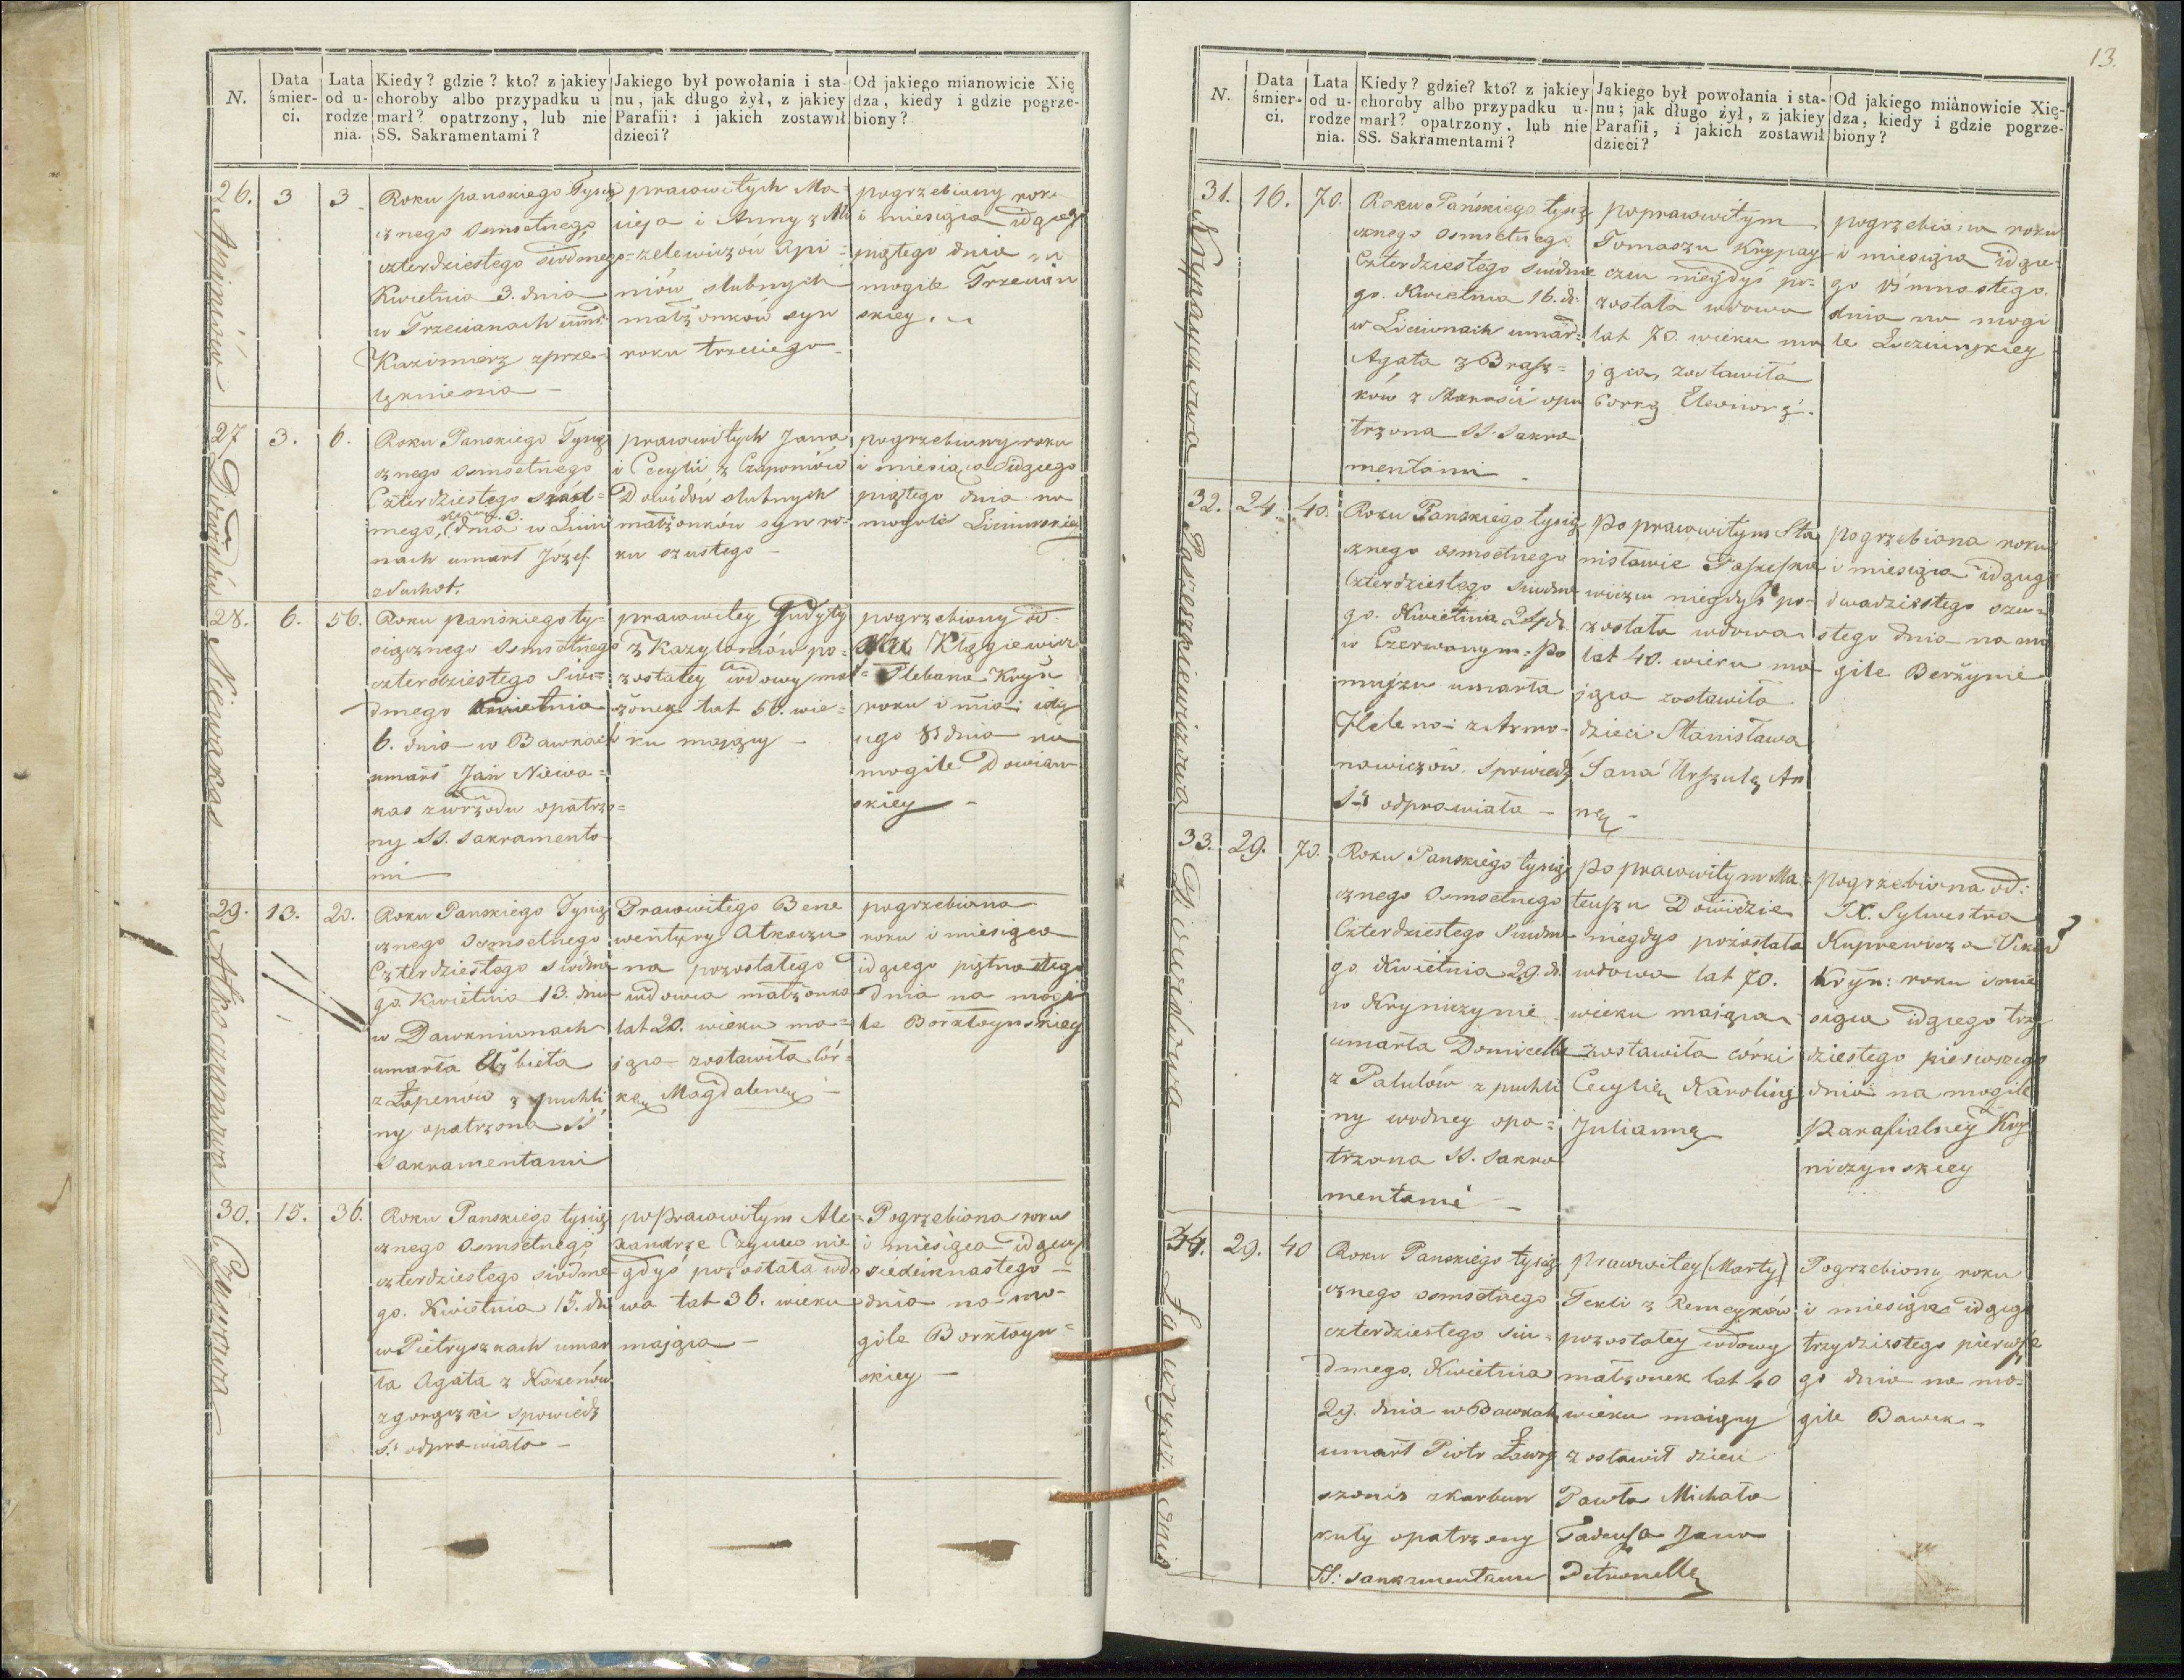 N.
Data śmier-ci.
Lata od u-rodze nia.
Kiedy? gdzie? kto? z jakiey
choroby albo przypadku u
marł? opatrzony, lub nie
SS. Sakramentami?
Jakiego był powołania i sta-
nu, jak długo żył, z jakiey
Parafii: i jakich zostawił
dzieci?
Od jakiego mianowicie Xię
dza, kiedy i gdzie pogrze-
biony?
26.
3
3
Roku pańskiego Tysią
cznego osmsetnego
czterdziestego siodmego
Kwietnia 3. dnia
w Trzecianach umar
Kazimierz z prze-
lęknienia
prawowitych Ma-
cieja i Anny z Mi
-zelewiczów Api-
niów slubnych
małżonków syn
roku trzeciego
pogrzebiony roku
i miesiąca idgieg
piątego dnia na
mogile Trzecian
skiey.
Apiniów
27
3.
6.
Roku Panskiego Tysią
cznego osmsetnego
Czterdziestego siód-
mego, dnia 3. w Liciu
nach umarł Józef
z suchot.
prawowitych Jana
i Cecylii z Czaponiów
Dowidów slubnych
małżonków syn ro-
ku szustego
pogrzebiony roku
i miesiąca idgiego
piątego dnia na
mogile Liciunskiey
Dowidów
28.
6.
56.
Roku pańskiego ty-
siącznego osmsetnego
czterdziestego siu-
dmego kwietnia
6. dnia w Bawkach
umarł Jan Niewa-
kas z wrzodu opatrzo-
ny SS. Sakramenta-
mi
prawowitey Judyty
z Kazylonów po-
zostałey wdowy mał-
żonek lat 56. wie-
ku mający
pogrzebiony od
Klągiewicz
Plebana Kryn
roku i mia: idg
iego 8 dnia na
mogile Dowian
skiey
Niewakas
29.
13.
20.
Roku Panskiego Tysią
cznego osmsetnego
Czterdziestego siódme
go. Kwietnia 13. dnia
w Dawkniunach
umarła Elżbieta
z Łapeniów z puchli
ny opatrzona SS
Sakramentami
Prawowitego Bene
wentury Atkoczu
na pozostałego
wdowca małżonka
lat 20. wieku ma-
jąca zostawiła cór-
kę Magdalenę
pogrzebiona
roku i miesiąca
idgiego piętnastego
dnia na mogi
le Borkłoynskiey
Atkoczunowa
30.
15.
36.
Roku Panskiego tysią
cznego osmsetnego
czterdziestego siódme
go. Kwietnia 15. dn
w Pietryszkach umar
ła Agata z Kazenów
z gorączki spowiedz
S. odprawiała
po prawowitym Ale-
xandrze Czyuno nie
gdys pozostała wdo
wa lat 36. wieku
mająca
Pogrzebiona roku
i miesiąca idgieg
siedemnastego
dnia na mo-
gile Borkłoyn-
skiey
13.
N.
Data śmier-ci.
Lata od u-rodze nia.
Kiedy? gdzie? kto? z jakiey
choroby albo przypadku u-
marł? opatrzony, lub nie
SS. Sakramentami?
Jakiego był powołania i sta-
nu; jak długo żył, z jakiey
Parafii, i jakich zostawił
dzieci?
Od jakiego mianowicie Xię-
dza, kiedy i gdzie pogrze-
biony?
31.
16.
70.
Roku Pańskiego tysią
cznego osmsetnego
Czterdziestego siudme
go. Kwietnia 16. d.
w Liciunach umar-
Agata z Brasz-
ków z starości opa
trzona SS. Sakra
mentami
po prawowitym
Tomaszu Krypay
czu niegdyś po-
została wdowa
lat 70. wieku ma
jąca, zostawiła
corkę Eleonorę.
pogrzebiona roku
i miesiąca idgie-
go ośmnastego.
dnia na mogi
le Liciunskiey
Krypayczowa
32.
24.
40.
Roku Panskiego tysią
cznego osmsetnego
Czterdziestego siudme
go. Kwietnia 24 d.
w Czerwonym-Po
muszu umarła
Helena z Armo-
nawiczów, spowiedz
S odprawiała
Po prawowitym Sta
nisławie Paszeszke
wiczu niegdyś po-
została wdowa
lat 40. wieku ma
jąca zostawiła
dzieci Stanisława
Jana Urszulę An
nę
pogrzebiona roku
i miesiąca idgieg
dwadziestego szu-
stego dnia na mo
gile Berżynie
Paszeszkiewiczowa
33.
29.
70.
Roku Panskiego tysią
cznego osmsetnego
Czterdziestego siudme
go. Kwietnia 29. d.
w Kryniczynie
umarła Domicella
z Palulów z puchli
ny wodney opa-
trzona SS. Sakra
mentami
Po prawowitym Ma
teuszu Dowidzie
niegdys pozostała
wdowa lat 70.
wieku mająca
zostawiła córki
Cecylię Karolinę
Juliannę
pogrzebiona od:
X. Sylwestra
Kuprewicza Vikar
Kryn: roku i mie
siąca idgiego trzy
dziestego pierwszego
dnia na mogile
Parafialney Kry
niczynskiey
Dowidowa
34.
29.
40
Roku Panskiego tysią
cznego osmsetnego
czterdziestego siu-
dmego. Kwietnia
29. dnia w Bawkach
umarł Piotr Ławry
szonis z karbun
kuły opatrzony
SS: sankramentami
prawowitey (Marty)
Tekli z Remeyków
pozostałey wdowy
małżonek lat 40
wieku maiący
zostawił dzieci
Pawła Michała
Tadeusza Jana
Petronellę
Pogrzebiony roku
i miesiąca idgieg
trzydziestego pierwsze
go dnia na mo-
gile Bawk.